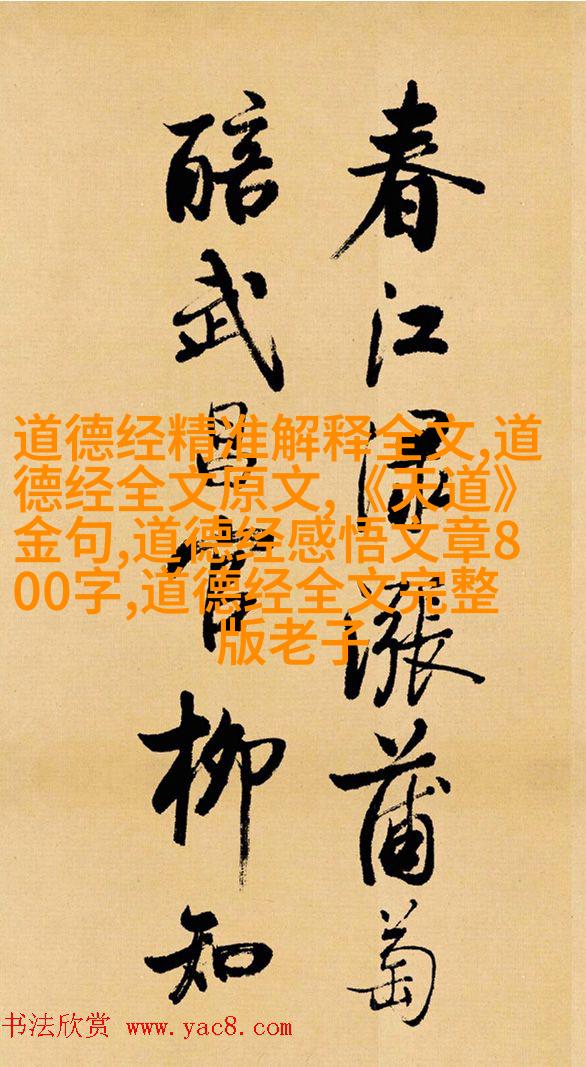 春江渌漲蒲萄
醅武昌官柳知
道德经精准解释全文,道
德经全文原文,《天道》
金句,道德经感悟文章8
00字,道德经全文完整
版老子
书法欣赏 www.yac8.com